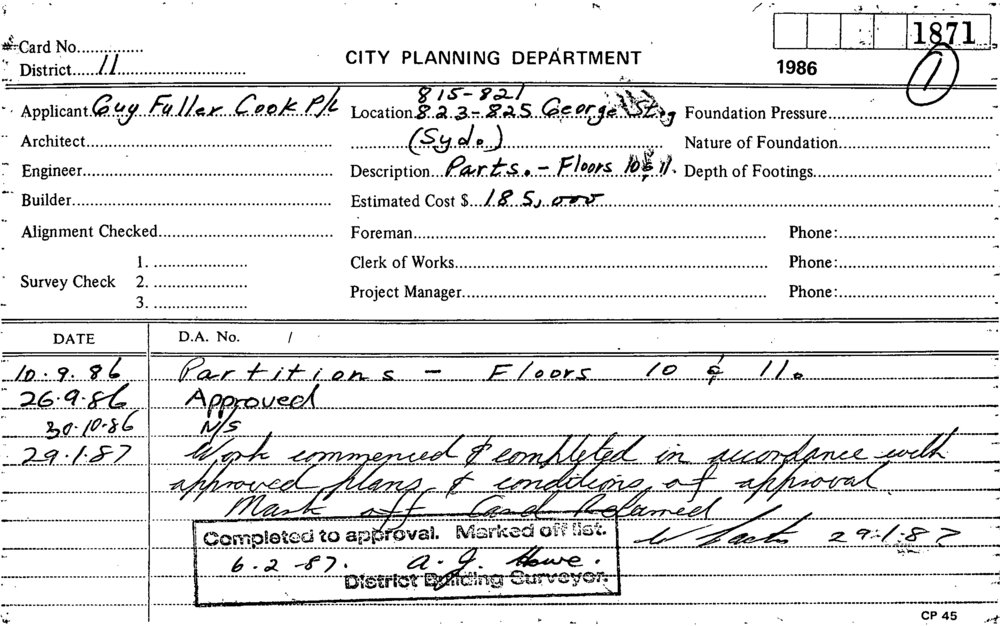 1871
Card No...............
CITY PLANNING DEPARTMENT
1986
1
District......11
815-821
Applicant Guy Fuller Cook P/L Location 823-825 George St, Foundation Pressure
Architect (Syd.) Nature of Foundation
Engineer Description Parts. - Floors 10 & 11. Depth of Footings
Builder Estimated Cost $ 185,000
Alignment Checked Foreman Phone:
1. Clerk of Works Phone:
Survey Check 2.
Project Manager Phone:
3.
DATE D.A. No. /
10.9.86 Partitions - Floors 10 & 11.
26.9.86 Approved
30.10.86 N/S
29.1.87 Work commenced & completed in accordance with
approved plans & conditions of approval
Mark off Card Returned
Completed to approval. Marked off list.
29.1.87
6.2.87. A.J. Howe.
District Building Surveyor.
CP 45